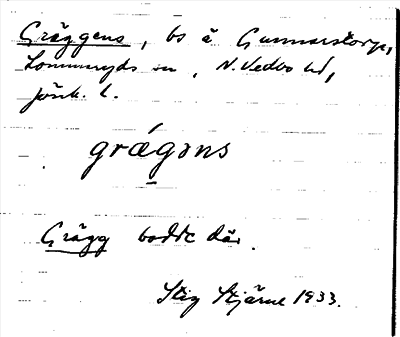 Gräggens, bs å Gunnarstorp,
Lommaryds sn, N. Vedbo hd,
Jönk. l.
græ´gəns
Grägg bodde där.
Stig Stjärne 1933.